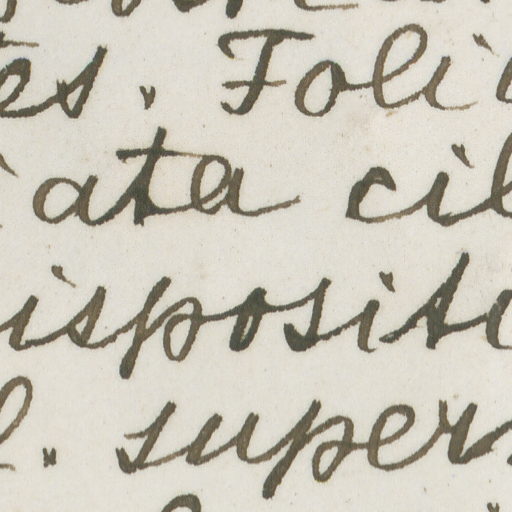 es. Foli
ata cil
isposit
l. super